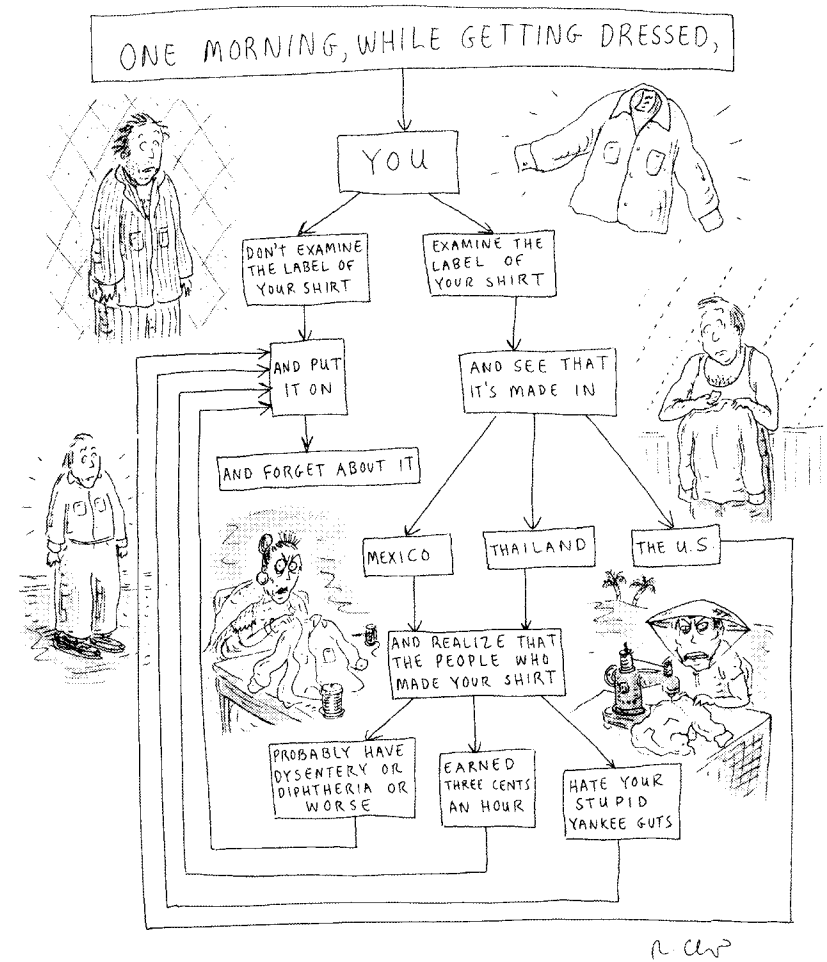 ONE MORNING, WHILE GETTING DRESSED,
YOU
DON'T EXAMINE
THE LABEL OF
YOUR SHIRT
EXAMINE THE
LABEL OF
YOUR SHIRT
AND PUT
IT ON
AND SEE THAT
IT'S MADE IN
AND FORGET ABOUT IT
MEXICO
THAILAND
THE U.S.
AND REALIZE THAT
THE PEOPLE WHO
MADE YOUR SHIRT
PROBABLY HAVE
DYSENTERY OR
DIPHTHERIA OR
WORSE
EARNED
THREE CENTS
AN HOUR
HATE YOUR
STUPID
YANKEE GUTS